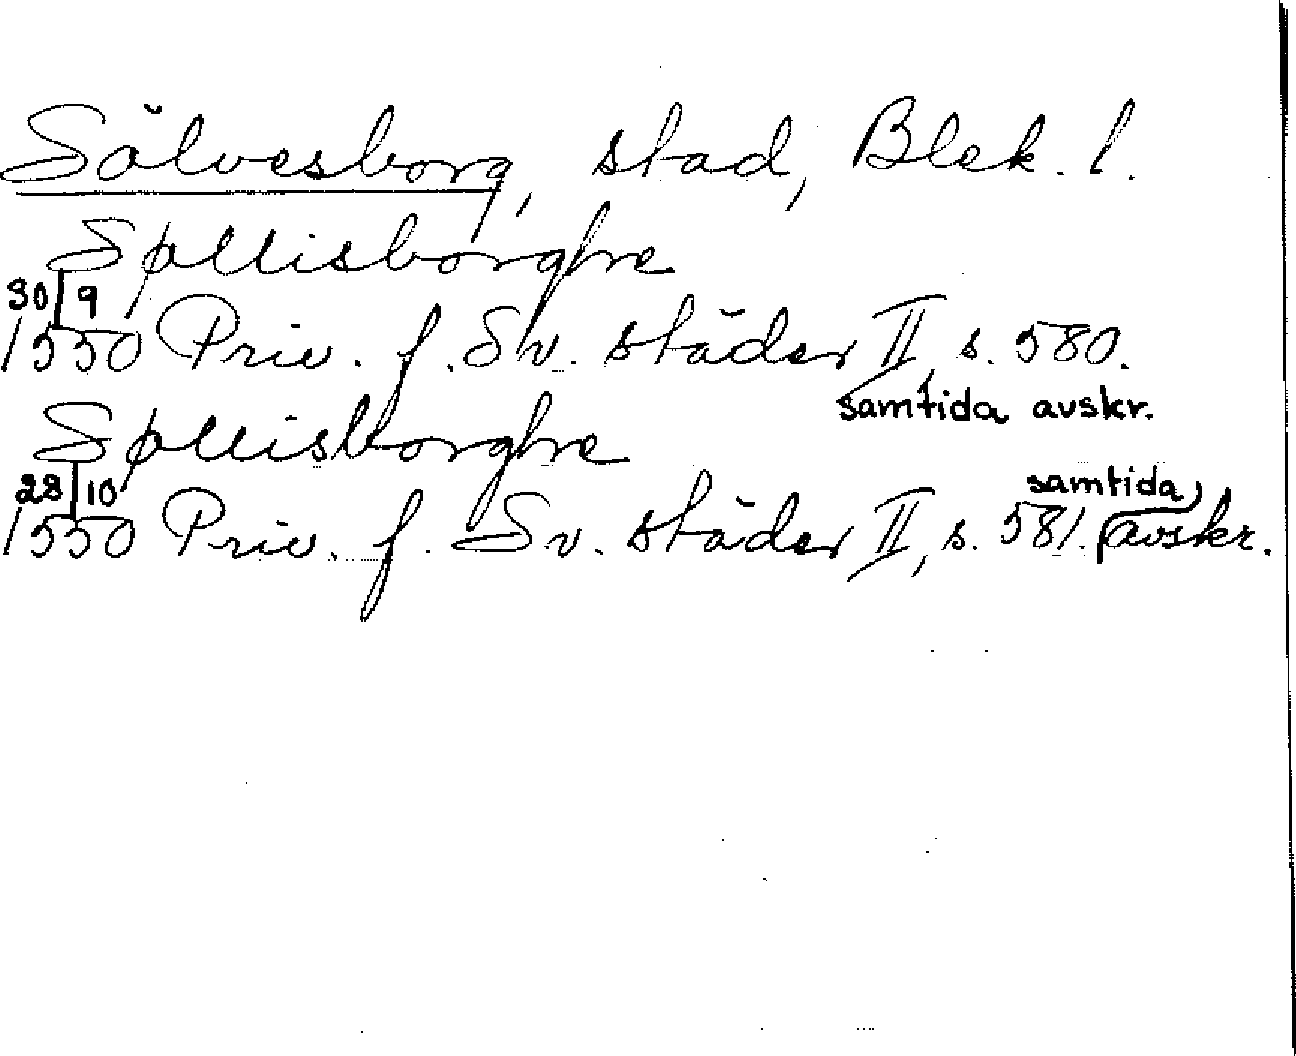 Sölvesborg, stad, Blek. l.
Søllisborghe
30/9
1550 Priv. f. Sv. städer II, s. 580.
samtida avskr.
Søllisborghe
28/10
1550 Priv. f. Sv. städer II, s. 581. samtida avskr.